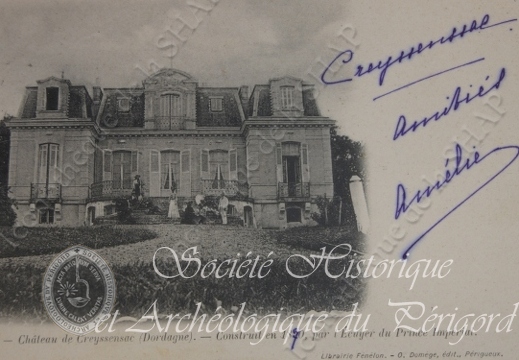 Creyssenssac
Amitiés
Amélie
Société Historique
et Archéologique du Périgord
- Château de Creyssensac (Dordogne). - Construit en par l'Ecuyer du Prince Impérial.
Librairie Fénelon. - O. Domège, édit., Périgueux.